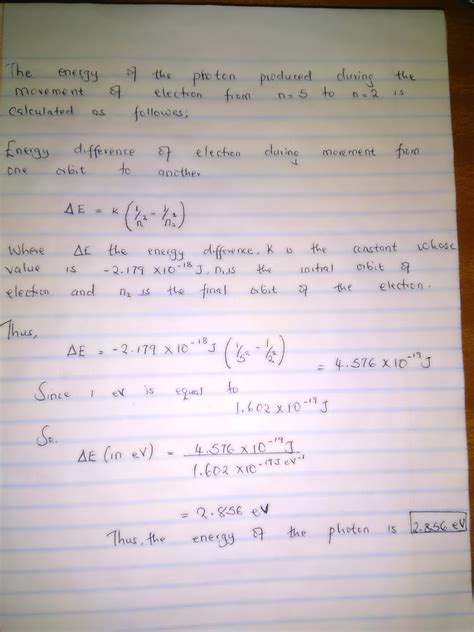 The energy of the photon produced during the
movement of electron from n=5 to n=2 is
calculated as followes;
Energy difference of electron during movement from
one orbit to another
ΔE = K (1/n₁² - 1/n₂²)
Where ΔE the energy difference, K is the constant whose
value is -2.179 ×10⁻¹⁸ J, n₁ is the initial orbit of
electron and n₂ is the final orbit of the electron.
Thus,
ΔE = -2.179 ×10⁻¹⁸ J (1/5² - 1/2²)
= 4.576 ×10⁻¹⁹ J
Since 1 eV is equal to
1.602 ×10⁻¹⁹ J
So.
ΔE (in eV) = 4.576 ×10⁻¹⁹ J
1.602 ×10⁻¹⁹ J eV⁻¹
= 2.856 eV
Thus, the energy of the photon is 2.856 eV